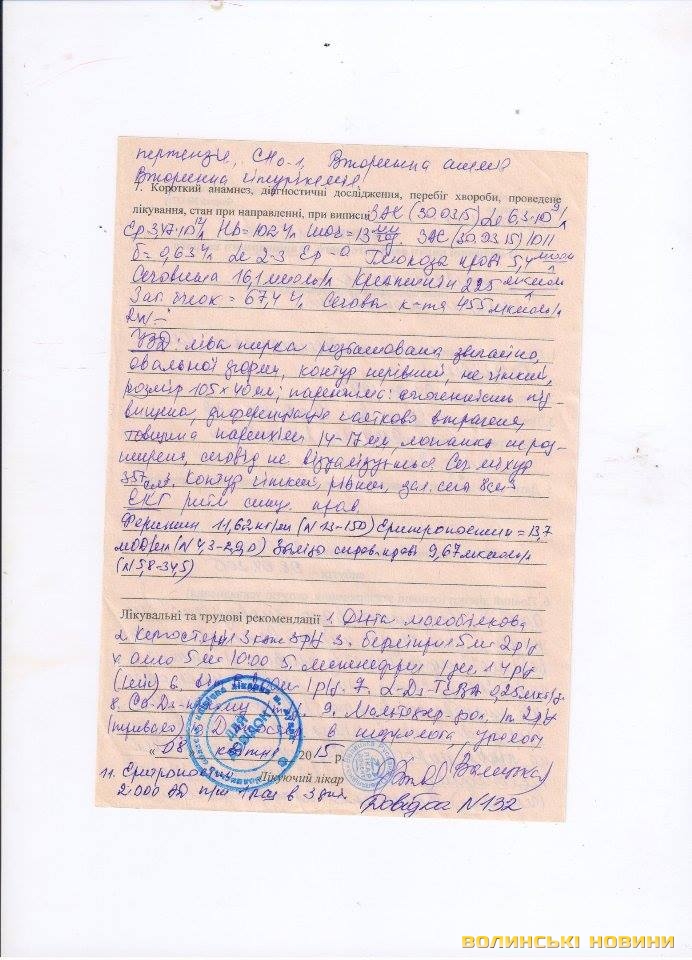 пертензія, СНо-1, Вторинна анемія
Вторинна гіперурікемія
7. Короткий анамнез, діагностичні дослідження, перебіг хвороби, проведене
лікування, стан при направленні, при виписці ЗАК (30.03.15) Le 6,3·10⁹/л
Ер 3,47·10¹²/л Hb=102 г/л ШОЕ=13 мм/год. ЗАС (30.03.15) 1011
б=0,63 г/л Le 2-3 Ер-0 Глюкоза крові 5,4 ммоль/л
Сечовина 16,1 ммоль/л Креатинін 225 мкмоль/л
Заг. білок = 67,4 г/л Сечова к-та 455 мкмоль/л
УЗД: ліва нирка розташована звичайно,
овальної форми, контур нерівний, не чіткий,
розмір 105×40 мм; паренхіма: ехогенність під-
вищена, диференціація частково втрачена,
товщина паренхіми 14-17 мм, миска не роз-
ширена, сечовід не візуалізується. Сеч. міхур
контур чіткий, рівний, зал. сеча
ЕКГ ритм синус. прав.
Феритин 11,62 нг/мл (N 13-150) Еритропоетин = 13,7
мОД/мл (N 4,3-29,0) Залізо сиров. крові 9,67 мкмоль/л
(N 5,8-34,5)
Лікувальні та трудові рекомендації 1. Дієта малобілкова
2. Кетостерил 3 капс 3 р/д 3. берліприл 5 мг 2 р/д
5 мг
0,25 мкг/д.
8. 9. Мальтофер 2 р/д
(тривало) в нефролога, уролога
« 08 » квітня 2015 р.
ДЛЯ ДОВІДОК
Лікуючий лікар
11. Еритропоетин
2000 ОД п/ш 1 раз в 3 дні
Довідка N 132
ВОЛИНСЬКІ НОВИНИ